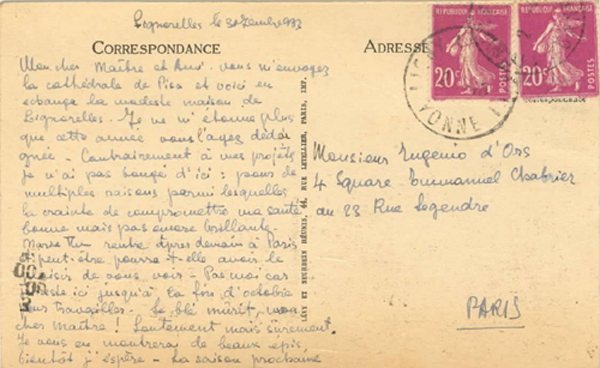 Lignorelles le
CORRESPONDANCE
Mon cher Maître et Ami. Vous m'envoyez
la cathédrale de Pise et voici en
échange la modeste maison de
Lignorelles. Je ne m'étonne plus
que cette année vous l'ayez dédai
gnée. Contrairement à mes projets
je n'ai pas bougé d'ici : pour de
multiples raisons parmi lesquelles
la crainte de compromettre ma santé
bonne mais pas encore brillante.
rentre après demain à Paris
peut-être pourra-t-elle avoir le
plaisir de vous voir - Pas moi car
reste ici jusqu'à la fin d'octobre
Le blé mûrit, mon
cher Maître ! Lentement mais sûrement.
Je vous en montrerai de beaux épis
bientôt j'espère - La saison prochaine
LÉVY ET NEURDEIN RÉUNIS, 44, RUE LETELLIER, PARIS, IMP.
ADRESSE
REPUBLIQUE FRANÇAISE
20c
POSTES
REPUBLIQUE FRANÇAISE
20c
POSTES
YONNE
Monsieur Eugenio d'Ors
4 Square Emmanuel Chabrier
au 23 Rue Legendre
PARIS